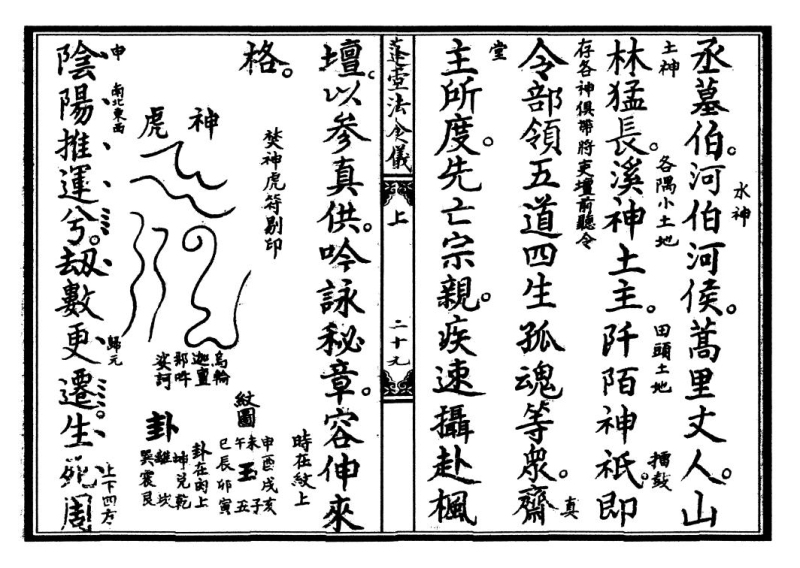 水神
丞墓伯。河伯河侯。蒿里丈人。山
土神 各隅小土地 田頭土地 擂鼓
林猛長。溪神土主。阡陌神祇。即
存各神俱帶將吏壇前聽令 真
令部領五道四生孤魂等衆。齋
堂
主所度。先亡宗親。疾速攝赴楓
法食儀 上 二十
壇。以參真供。吟詠秘章。容伸來
格。
時在紋上
焚神虎符剔印
神虎
紋圖
申酉戌亥
未 子
玉
午 五
巳辰卯寅
卦在肉上
坤兌乾
離 坎
巽震艮
卦
烏輪
都吽
娑訶
申 南北東西 歸元 上下四方
陰陽推運兮。劫數更遷。生死周